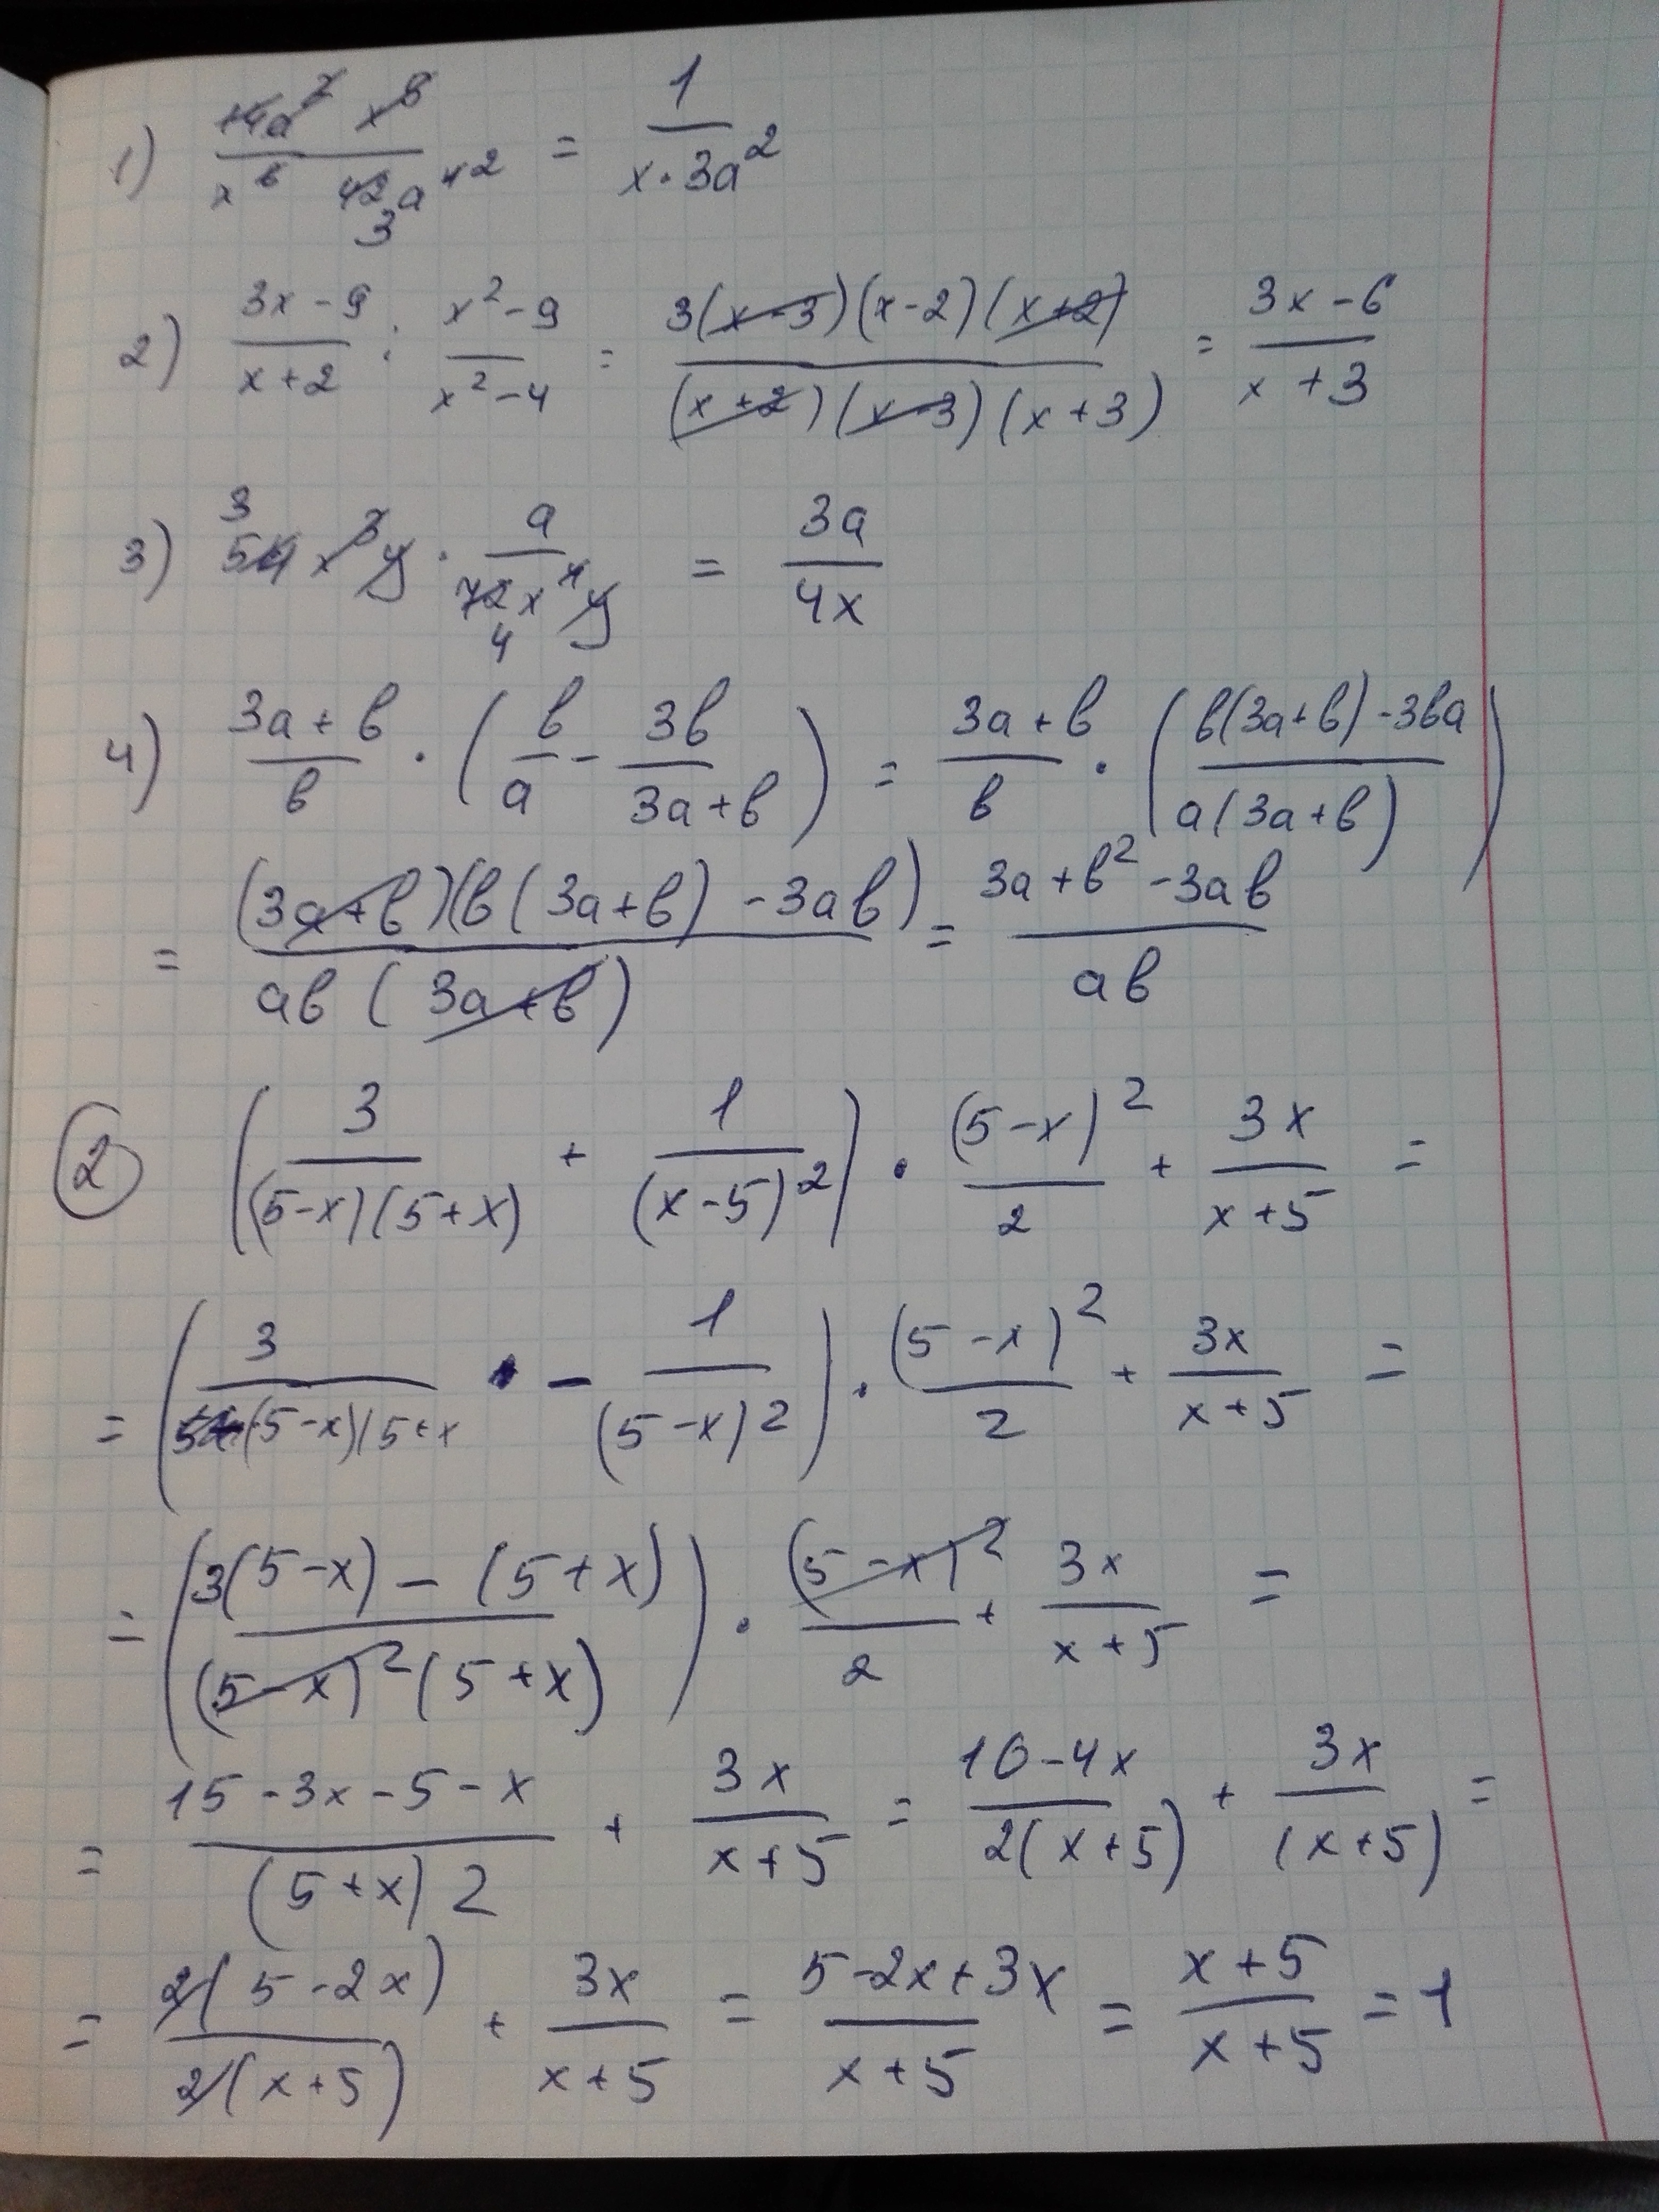 1) 14a² x⁵ / x⁶ 42a⁴ 2 3 = 1 / x·3a²
2) 3x-9 / x+2 : x²-9 / x²-4 = 3(x-3)(x-2)(x+2) / (x+2)(x-3)(x+3) = 3x-6 / x+3
3) 3 54x³y · a / 72x⁴y 4 = 3a / 4x
4) 3a+b / b · (b / a - 3b / 3a+b) = 3a+b / b · (b(3a+b)-3ba / a(3a+b))
= (3a+b)(b(3a+b)-3ab) / ab(3a+b) = 3a+b²-3ab / ab
2 (3 / (5-x)(5+x) + 1 / (x-5)²) · (5-x)² / 2 + 3x / x+5 =
= (3 / (5-x)(5+x - 1 / (5-x)²) · (5-x)² / 2 + 3x / x+5 =
= (3(5-x)-(5+x) / (5-x)²(5+x)) · (5-x)² / 2 + 3x / x+5 =
= 15-3x-5-x / (5+x)2 + 3x / x+5 = 10-4x / 2(x+5) + 3x / (x+5) =
= 2(5-2x) / 2(x+5) + 3x / x+5 = 5-2x+3x / x+5 = x+5 / x+5 = 1